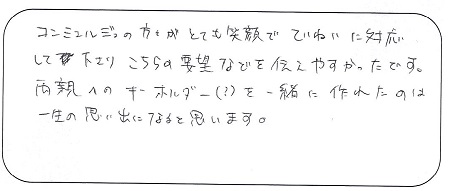 コンシェルジュの方々がとても笑顔でていねいに対応
して下さりこちらの要望などを伝えやすかったです。
両親へのキーホルダー(?)を一緒に作れたのは
一生の思い出になると思います。